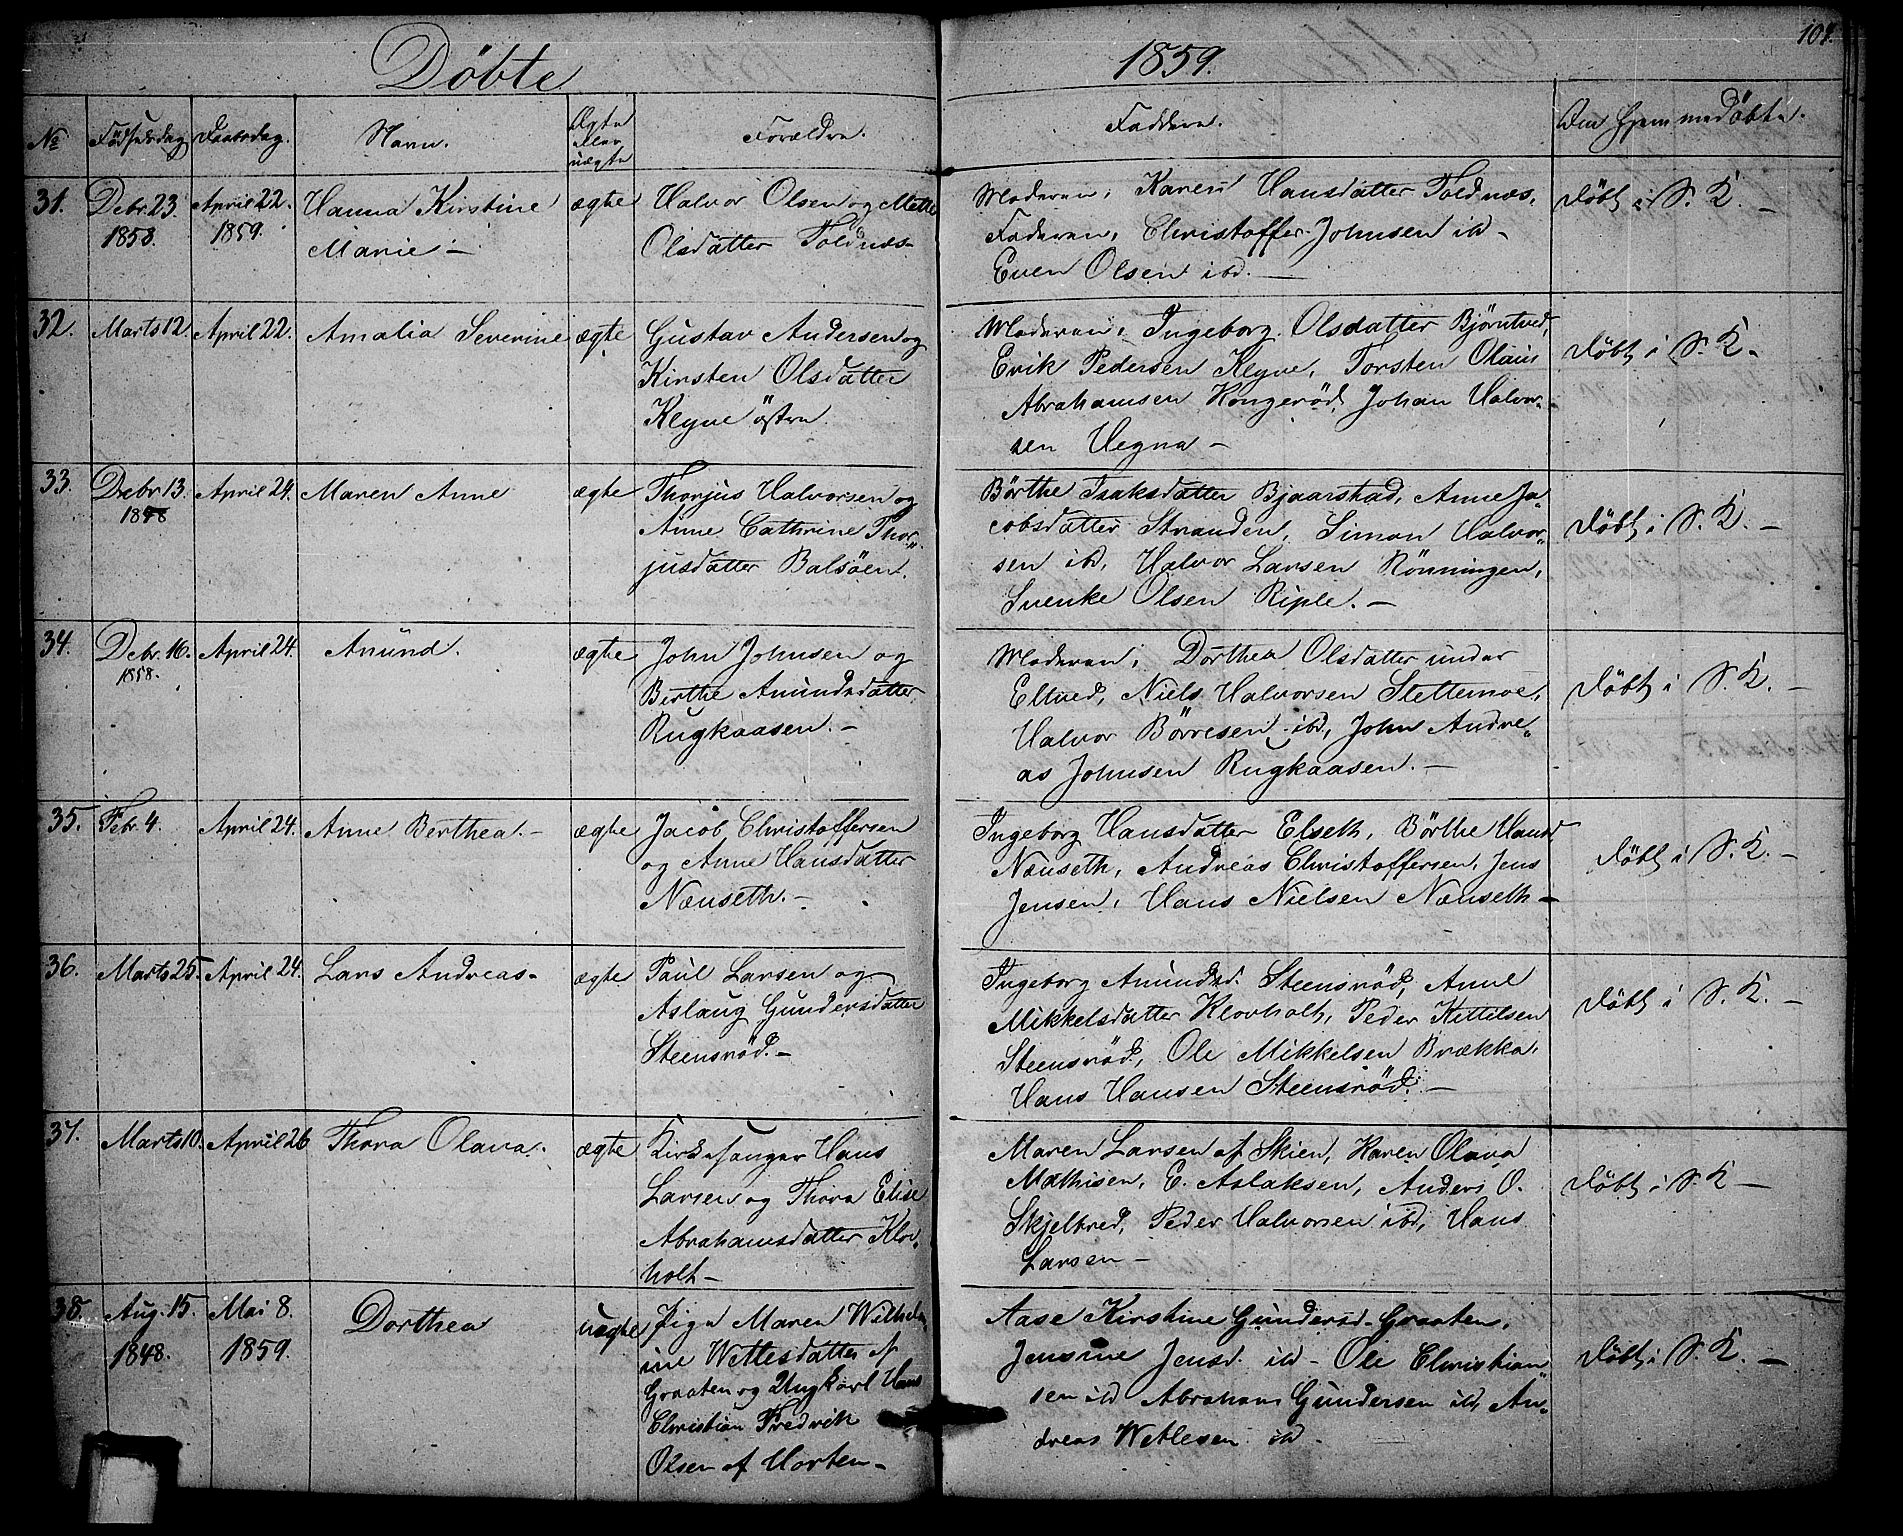 Döbte
1859.
104.
№
Födselsdag
Daabsdag.
Navn.
Ægte
eller
uægte
Forældre.
Faddere.
Om hjemmedöbt.
31.
Debr. 23.
1858.
April 22.
1859.
Hanna Kirstine
Marie –
ægte
Halvor Olsen og Mette
Olsdatter Toldnæs.
Moderen, Karen Hansdatter Toldnæs,
Faderen, Christoffer Johnsen ib –
Even Olsen ibd. –
Döbt i S. K. –
32.
Marts 12.
April 22.
Amalia Severine
ægte
Gustav Andersen og
Kirsten Olsdatter
Klyve östre.
Moderen, Ingeborg Olsdatter Björntved,
Erik Pedersen Klyve, Torsten Olaus
Abrahamsen Kongeröd, Johan Halvor-
sen Hegna –
Döbt i S. K. –
33.
Debr 13.
1858
April 24.
Maren Anne
ægte
Thorjus Halvorsen og
Anne Cathrine Thor-
jusdatter Balsöen.
Börthe Isaksdatter Bjaarstad, Anne Ja-
cobsdatter Stranden, Simon Halvor-
sen ib, Halvor Larsen Rönningen,
Svenke Olsen Riple. –
Döbt i S. K. –
34.
Debr. 16.
1858.
April 24.
Amund.
ægte
John Johnsen og
Berthe Amundsdatter
Rugkaasen. –
Moderen, Dorthea Olsdatter under
Eltved, Niels Halvorsen Slettemoe,
Halvor Börresen ibd, John Andre-
as Johnsen Rugkaasen. –
Döbt i S. K. –
35.
Febr. 4.
April 24.
Anne Berthea. –
ægte
Jacob Christoffersen
og Anne Hansdatter
Nænseth. –
Ingeborg Hansdatter Elseth, Börthe Hansd
Nænseth, Andreas Christoffersen, Jens
Jensen, Hans Nielsen Nænseth –
Döbt i S. K. –
36.
Marts 25.
April 24.
Lars Andreas.
ægte
Paul Larsen og
Aslaug Gundersdatter
Steensröd. –
Ingeborg Amundsd. Steensröd, Anne
Mikkelsdatter Klovholt, Peder Kittilsen
Steensröd, Ole Mikkelsen Brækka,
Hans Hansen Steensröd. –
Döbt i S. K. –
37.
Marts 10.
April 26
Thora Olava.
ægte
Kirkesanger Hans
Larsen og Thora Elise
Abrahamsdatter Klov-
holt –
Maren Larsen af Skien, Karen Olava
Mathisen, E. Aslaksen, Anders O.
Skjelbred, Peder Halvorsen ibd, Hans
Larsen –
Döbt i S. K –
38.
Aug. 15.
1848.
Mai 8.
1859.
Dorthea
uægte
Pige Maren Wilhelm-
ine Wetlesdatter af
Graaten og Ungkarl Hans
Christian Fredrik
Olsen af Horten –
Aase Kirstine Gundersd. Graaten,
Jensine Jensd. ib – Ole Christian
sen ib Abraham Gundersen ib, An-
dreas Wetlesen ib –
Döbt i S. K. –